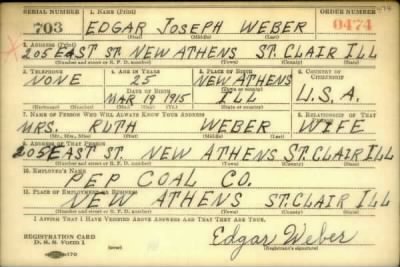 SERIAL NUMBER 1. NAME (Print) ORDER NUMBER
703 EDGAR JOSEPH WEBER 0474
(First) (Middle) (Last)
2. ADDRESS (Print)
205 EAST ST. NEW ATHENS ST. CLAIR ILL
(Number and street or R. F. D. number) (Town) (County) (State)
3. TELEPHONE 4. AGE IN YEARS 5. PLACE OF BIRTH 6. COUNTRY OF CITIZENSHIP
NONE 25 NEW ATHENS
DATE OF BIRTH (Town or county)
MAR 19 1915 ILL U.S.A.
(Exchange) (Number) (Mo.) (Day) (Yr.) (State or country)
7. NAME OF PERSON WHO WILL ALWAYS KNOW YOUR ADDRESS 8. RELATIONSHIP OF THAT PERSON
MRS. RUTH WEBER WIFE
(Mr., Mrs., Miss) (First) (Middle) (Last)
9. ADDRESS OF THAT PERSON
205 EAST ST NEW ATHENS ST. CLAIR ILL
(Number and street or R. F. D. number) (Town) (County) (State)
10. EMPLOYER'S NAME
PEP COAL CO.
11. PLACE OF EMPLOYMENT OR BUSINESS
NEW ATHENS ST. CLAIR ILL
(Number and street or R. F. D. number) (Town) (County) (State)
I AFFIRM THAT I HAVE VERIFIED ABOVE ANSWERS AND THAT THEY ARE TRUE.
REGISTRATION CARD
D. S. S. Form 1 Edgar Weber
(Registrant's signature)